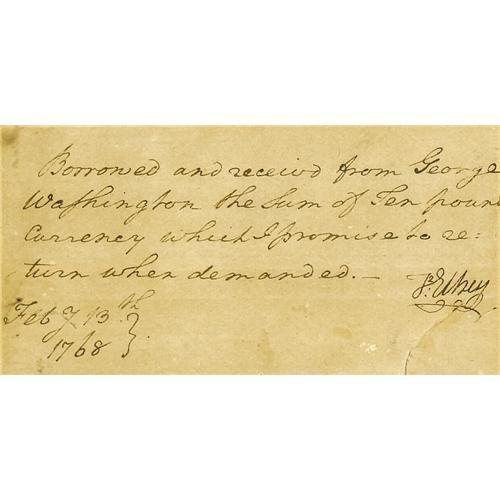 Borrowed and receivd from George
Washington the Sum of Ten pound
Currency which I promise to re=
turn when demanded. —
Feb y 13.th
1768